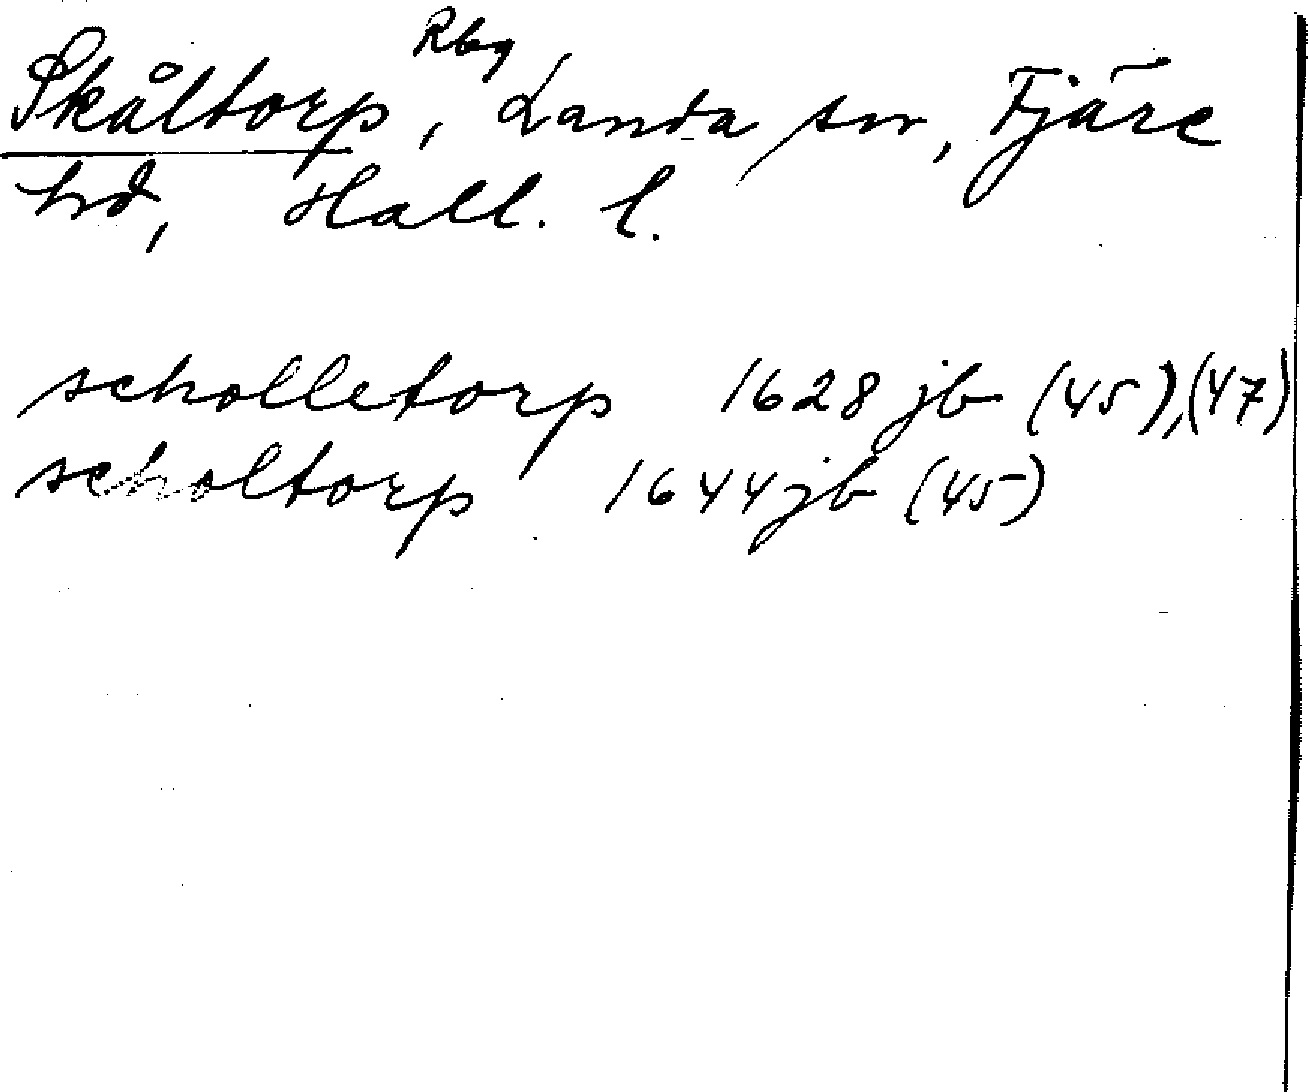 Skåltorp, Rbg, Landa sn, Fjäre
hd, Hall. l.
scholletorp 1628 jb (45), (47)
scholtorp 1644 jb (45)